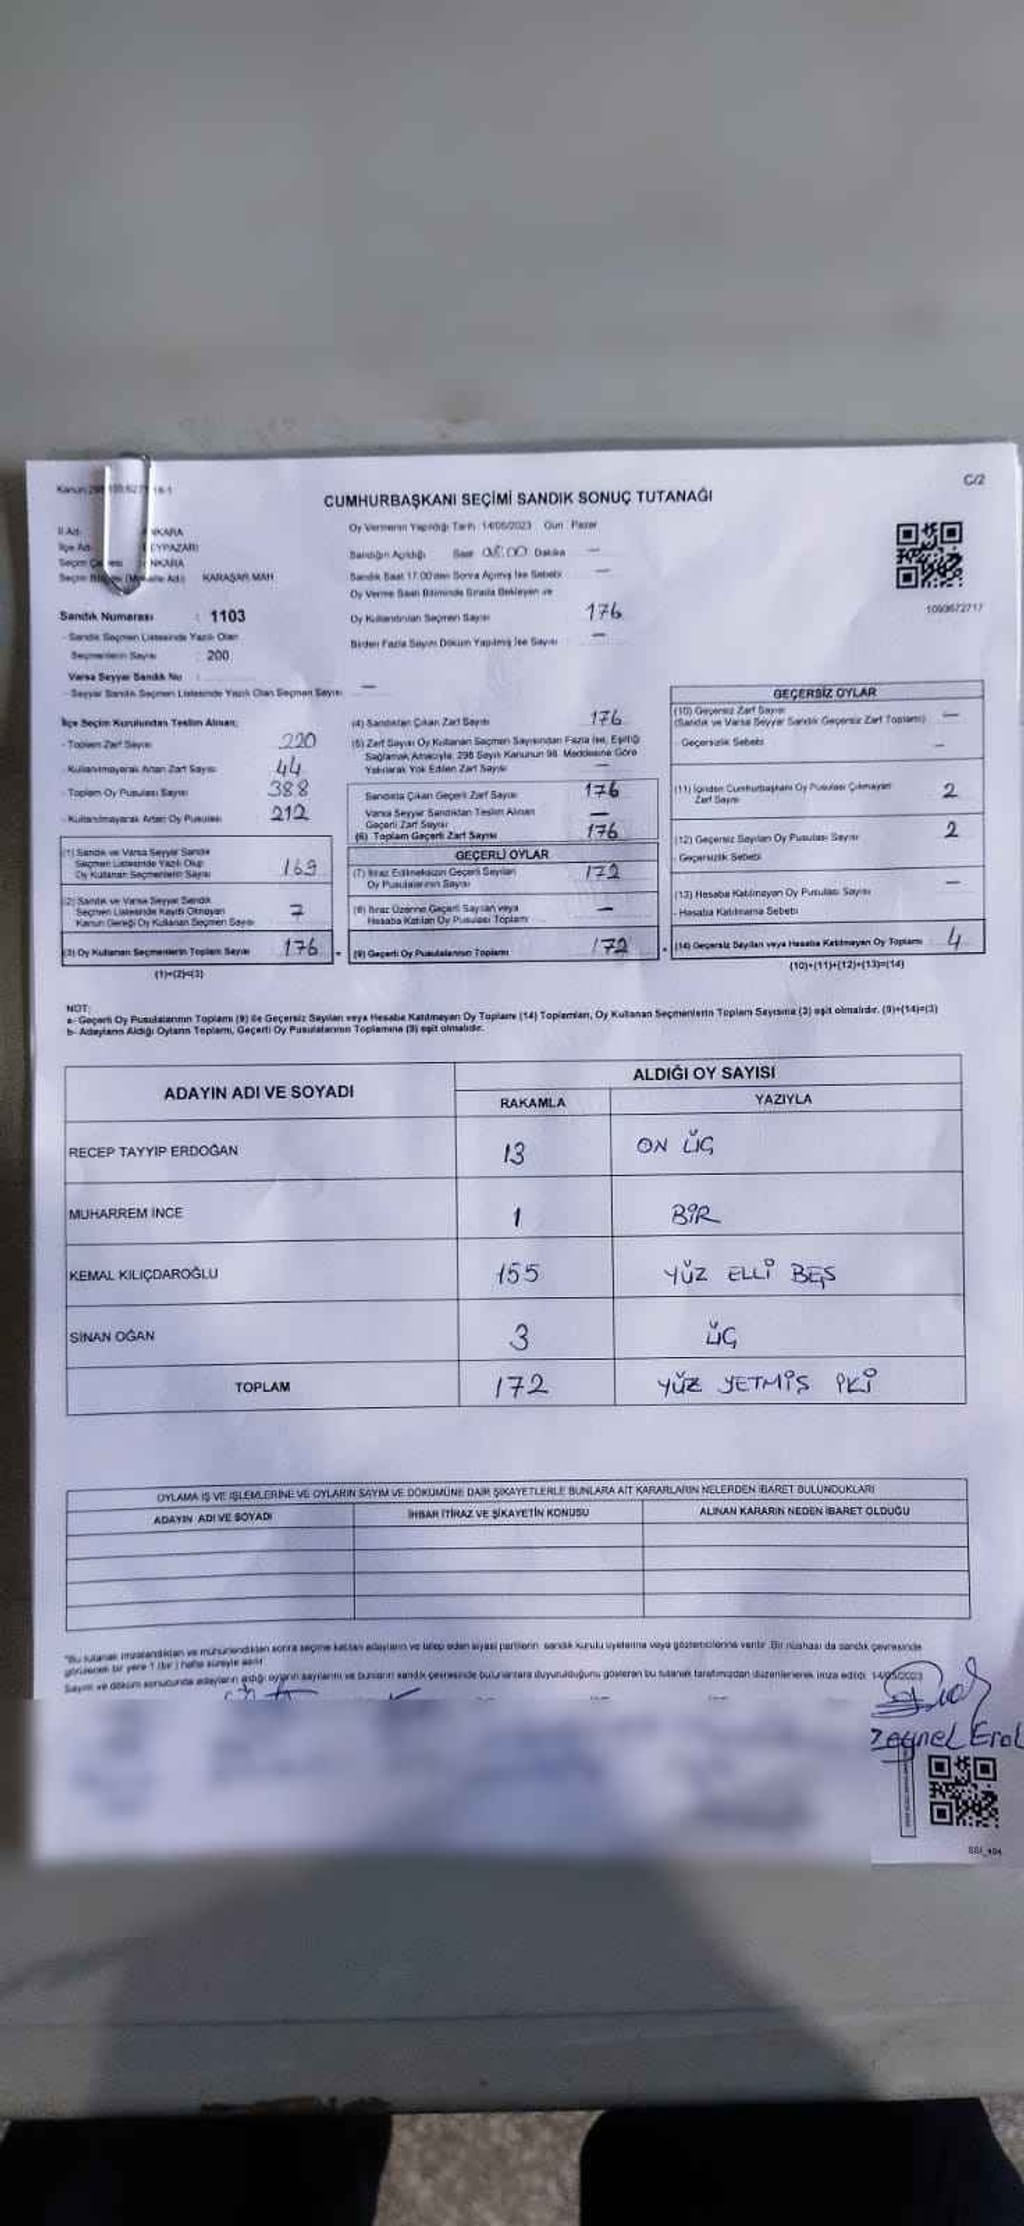 C/2
CUMHURBAŞKANI SEÇİMİ SANDIK SONUÇ TUTANAĞI
Oy Vermenin Yapıldığı Tarih 14/05/2023 Gün Pazar
Sandığın Açıldığı Saat 08:00 Dakika —
Sandık Saat 17.00'den Sonra Açılmış İse Sebebi —
Oy Verme Saati Bitiminde Sırada Bekleyen ve
Oy Kullandırılan Seçmen Sayısı 176
Birden Fazla Sayım Döküm Yapılmış İse Sayısı —
1093672717
KARAŞAR MAH
Sandık Numarası : 1103
- Sandık Seçmen Listesinde Yazılı Olan
Seçmenlerin Sayısı 200
Varsa Seyyar Sandık No :
- Seyyar Sandık Seçmen Listesinde Yazılı Olan Seçmen Sayısı —
İlçe Seçim Kurulundan Teslim Alınan:
- Toplam Zarf Sayısı 220
- Kullanılmayarak Artan Zarf Sayısı 44
- Toplam Oy Pusulası Sayısı 388
- Kullanılmayarak Artan Oy Pusulası 212
(1) Sandık ve Varsa Seyyar Sandık
Seçmen Listesinde Yazılı Olup
Oy Kullanan Seçmenlerin Sayısı 169
(2) Sandık ve Varsa Seyyar Sandık
Seçmen Listesinde Kayıtlı Olmayan
Kanun Gereği Oy Kullanan Seçmen Sayısı 7
(3) Oy Kullanan Seçmenlerin Toplam Sayısı 176
(1)+(2)=(3)
(4) Sandıktan Çıkan Zarf Sayısı 176
(5) Zarf Sayısı Oy Kullanan Seçmen Sayısından Fazla İse, Eşitliği
Sağlamak Amacıyla, 298 Sayılı Kanunun 98. Maddesine Göre
Yakılarak Yok Edilen Zarf Sayısı —
Sandıkta Çıkan Geçerli Zarf Sayısı 176
Varsa Seyyar Sandıktan Teslim Alınan
Geçerli Zarf Sayısı —
(6) Toplam Geçerli Zarf Sayısı 176
GEÇERLİ OYLAR
(7) İtiraz Edilmeksizin Geçerli Sayılan
Oy Pusulalarının Sayısı 172
(8) İtiraz Üzerine Geçerli Sayılan veya
Hesaba Katılan Oy Pusulası Toplamı —
(9) Geçerli Oy Pusulalarının Toplamı 172
GEÇERSİZ OYLAR
(10) Geçersiz Zarf Sayısı —
(Sandık ve Varsa Seyyar Sandık Geçersiz Zarf Toplamı)
- Geçersizlik Sebebi —
(11) İçinden Cumhurbaşkanı Oy Pusulası Çıkmayan
Zarf Sayısı 2
(12) Geçersiz Sayılan Oy Pusulası Sayısı 2
- Geçersizlik Sebebi
(13) Hesaba Katılmayan Oy Pusulası Sayısı —
- Hesaba Katılmama Sebebi
(14) Geçersiz Sayılan veya Hesaba Katılmayan Oy Toplamı 4
(10)+(11)+(12)+(13)=(14)
NOT:
a- Geçerli Oy Pusulalarının Toplamı (9) ile Geçersiz Sayılan veya Hesaba Katılmayan Oy Toplamı (14) Toplamları, Oy Kullanan Seçmenlerin Toplam Sayısına (3) eşit olmalıdır. (9)+(14)=(3)
b- Adayların Aldığı Oyların Toplamı, Geçerli Oy Pusulalarının Toplamına (9) eşit olmalıdır.
ADAYIN ADI VE SOYADI ALDIĞI OY SAYISI
RAKAMLA YAZIYLA
RECEP TAYYİP ERDOĞAN 13 ON ÜÇ
MUHARREM İNCE 1 BİR
KEMAL KILIÇDAROĞLU 155 YÜZ ELLİ BEŞ
SİNAN OĞAN 3 ÜÇ
TOPLAM 172 YÜZ YETMİŞ İKİ
OYLAMA İŞ VE İŞLEMLERİNE VE OYLARIN SAYIM VE DÖKÜMÜNE DAİR ŞİKAYETLERLE BUNLARA AİT KARARLARIN NELERDEN İBARET BULUNDUKLARI
ADAYIN ADI VE SOYADI İHBAR İTİRAZ VE ŞİKAYETİN KONUSU ALINAN KARARIN NEDEN İBARET OLDUĞU
"Bu tutanak imzalandıktan ve mühürlendikten sonra seçime katılan adayların ve talep eden siyasi partilerin sandık kurulu üyelerine veya gözlemcilerine verilir. Bir nüshası da sandık çevresinde
görülecek bir yere 1 (bir) hafta süreyle asılır."
Sayım ve döküm sonucunda adayların aldığı oyların sayılarını ve bunların sandık çevresinde bulunanlara duyurulduğunu gösteren bu tutanak tarafımızdan düzenlenerek imza edildi. 14/05/2023
Zeynel Erol